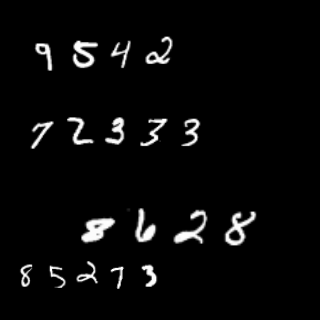 9542
72333
8628
85273